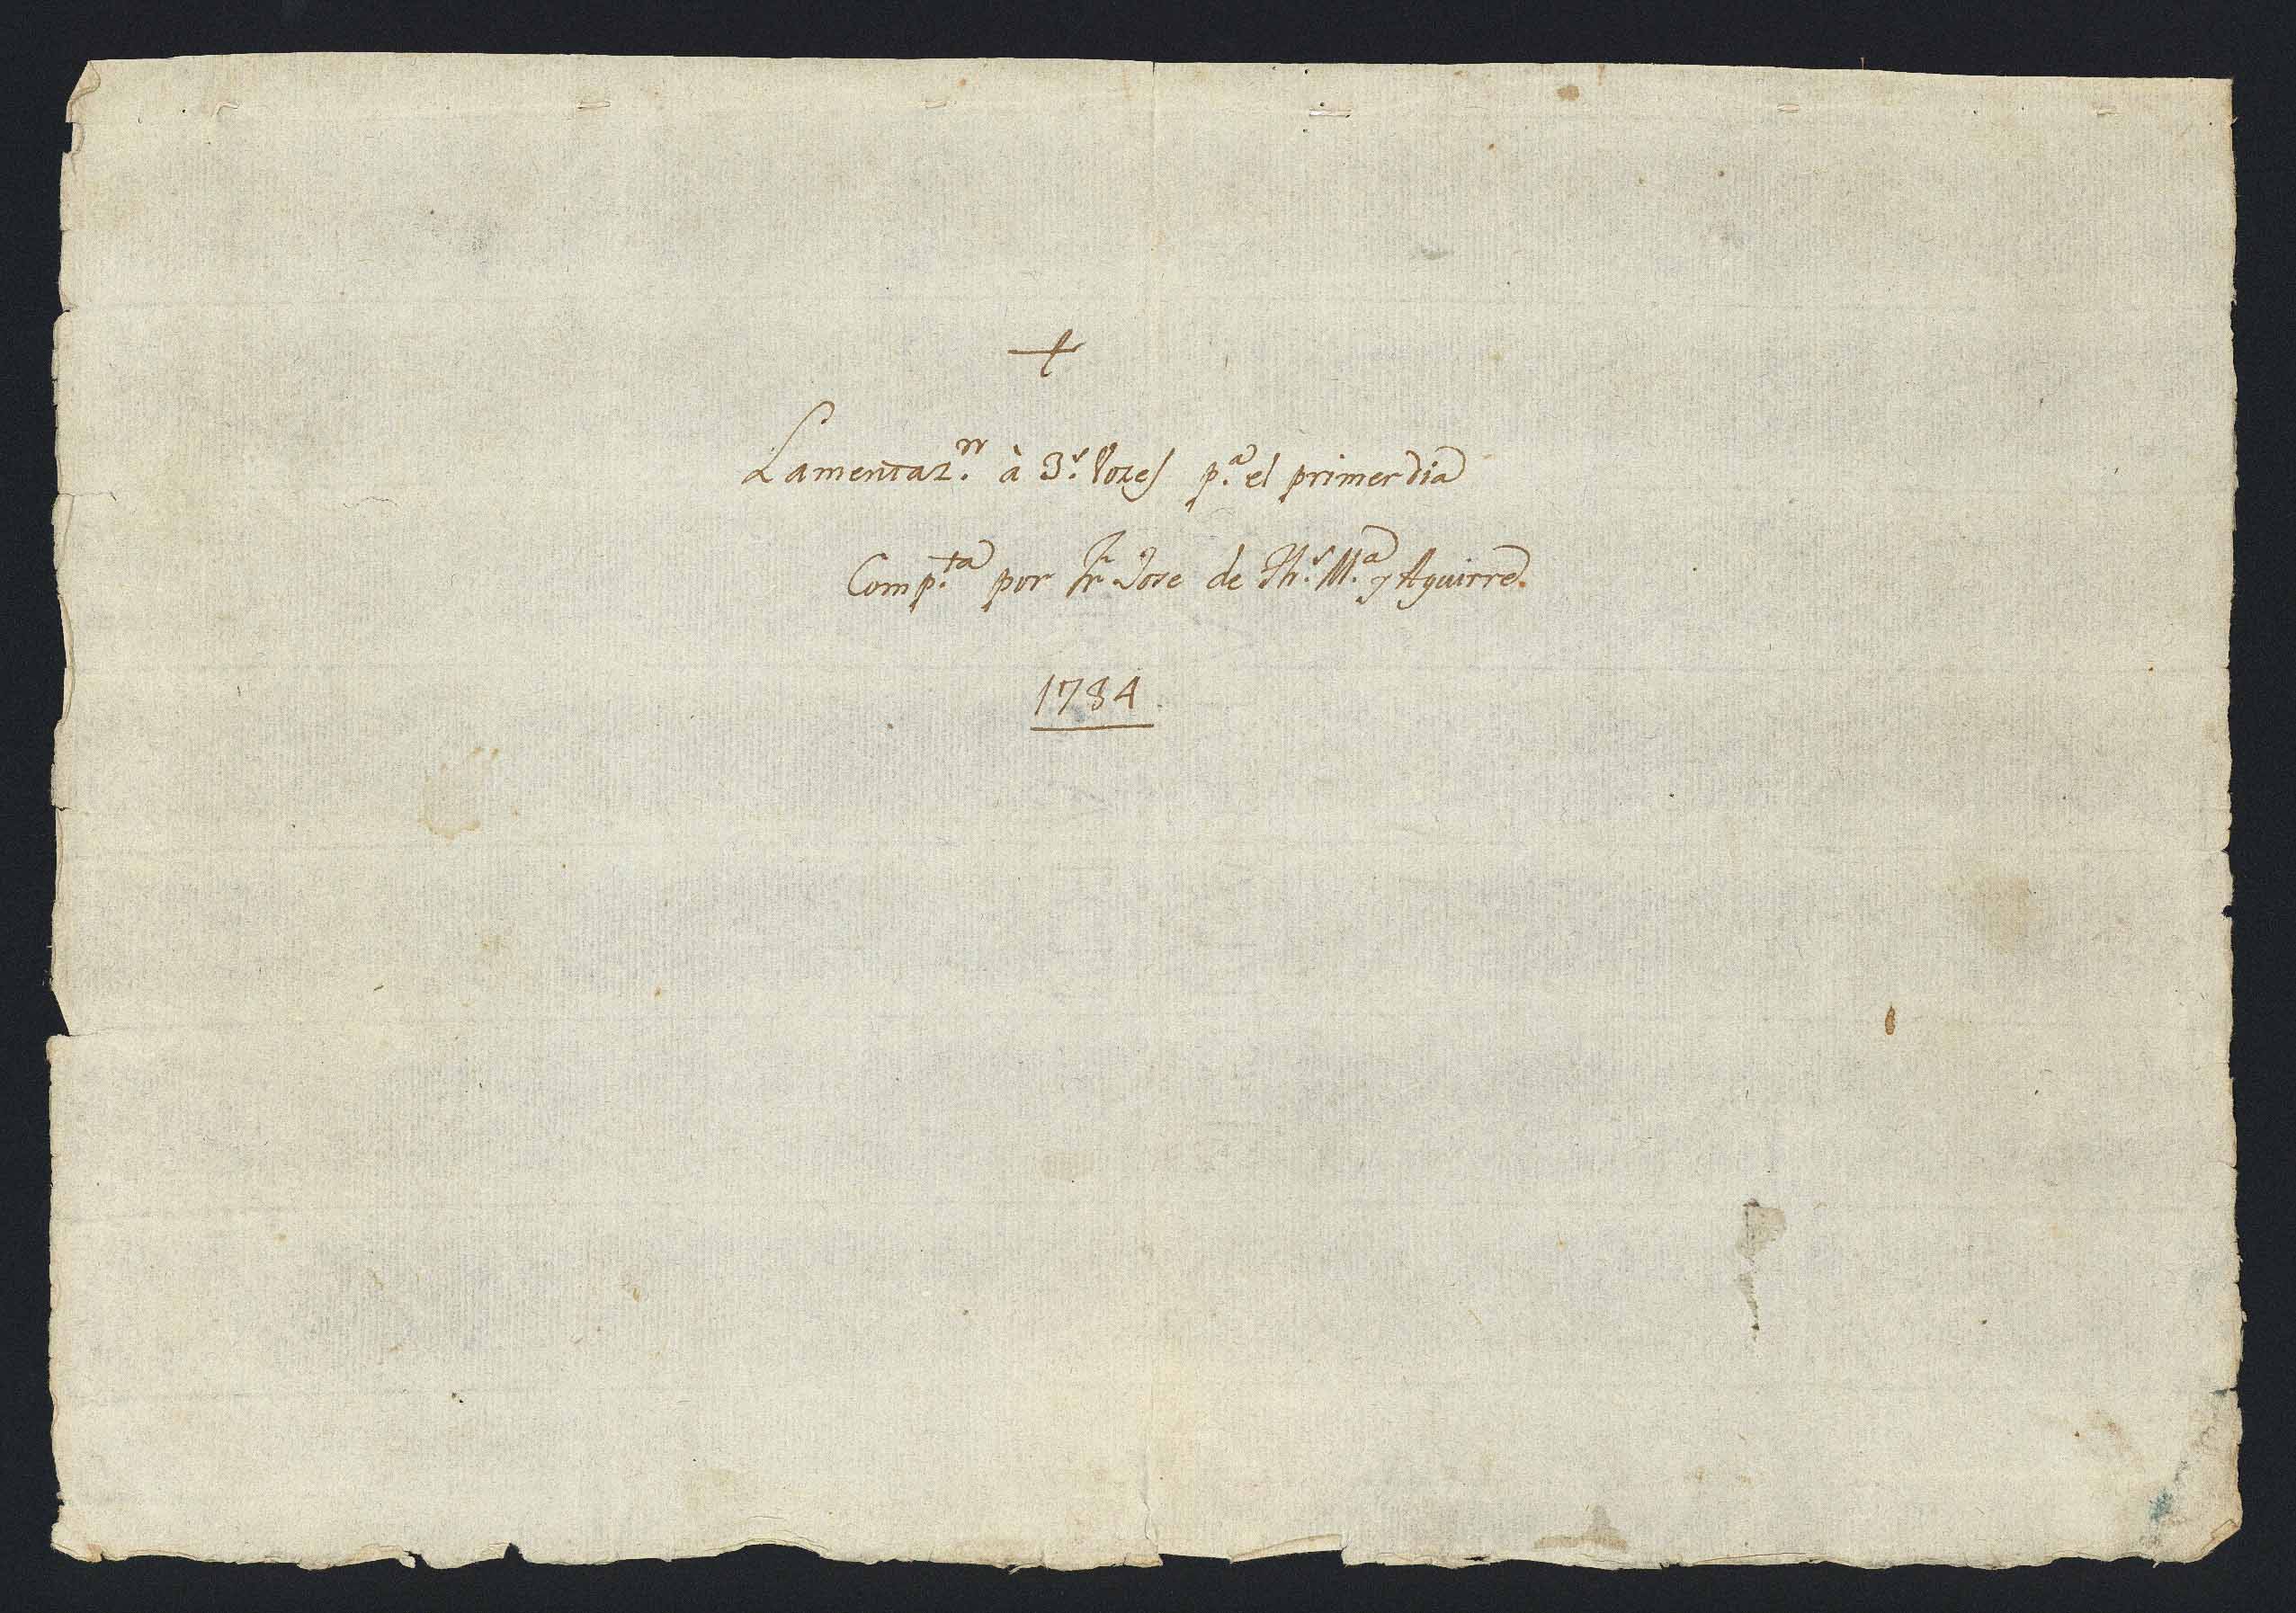 +
Lamentaz.n à 3.s Vozes p.a el primer dia
Comp.ta por Fr. Jose de Jh.s M.a y Aguirre.
1784